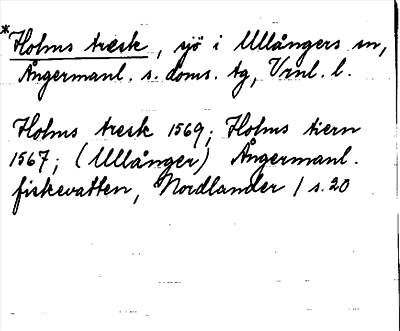 *Holms træsk, sjö i Ullångers sn,
Ångermanl. s. doms. tg, Vrnl. l.
Holms tresk 1569; Holms tiern
1567; (Ullånger) Ångermanl.
fiskevatten, Nordlander 1 s. 20